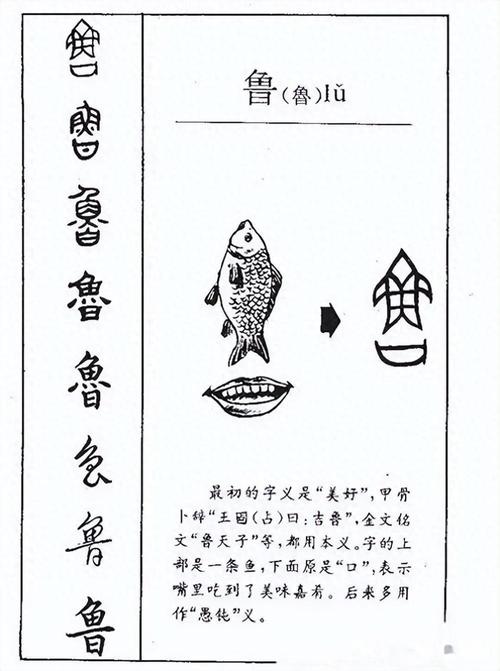 鲁(魯)lǔ
最初的字义是“美好”,甲骨
卜辞“王𠱾(占)曰:吉鲁”,金文铭
文“鲁天子”等,都用本义。字的上
部是一条鱼,下面原是“口”,表示
嘴里吃到了美味嘉肴。后来多用
作“愚钝”义。
魯
魯
魯
魯
魯
鲁
鲁